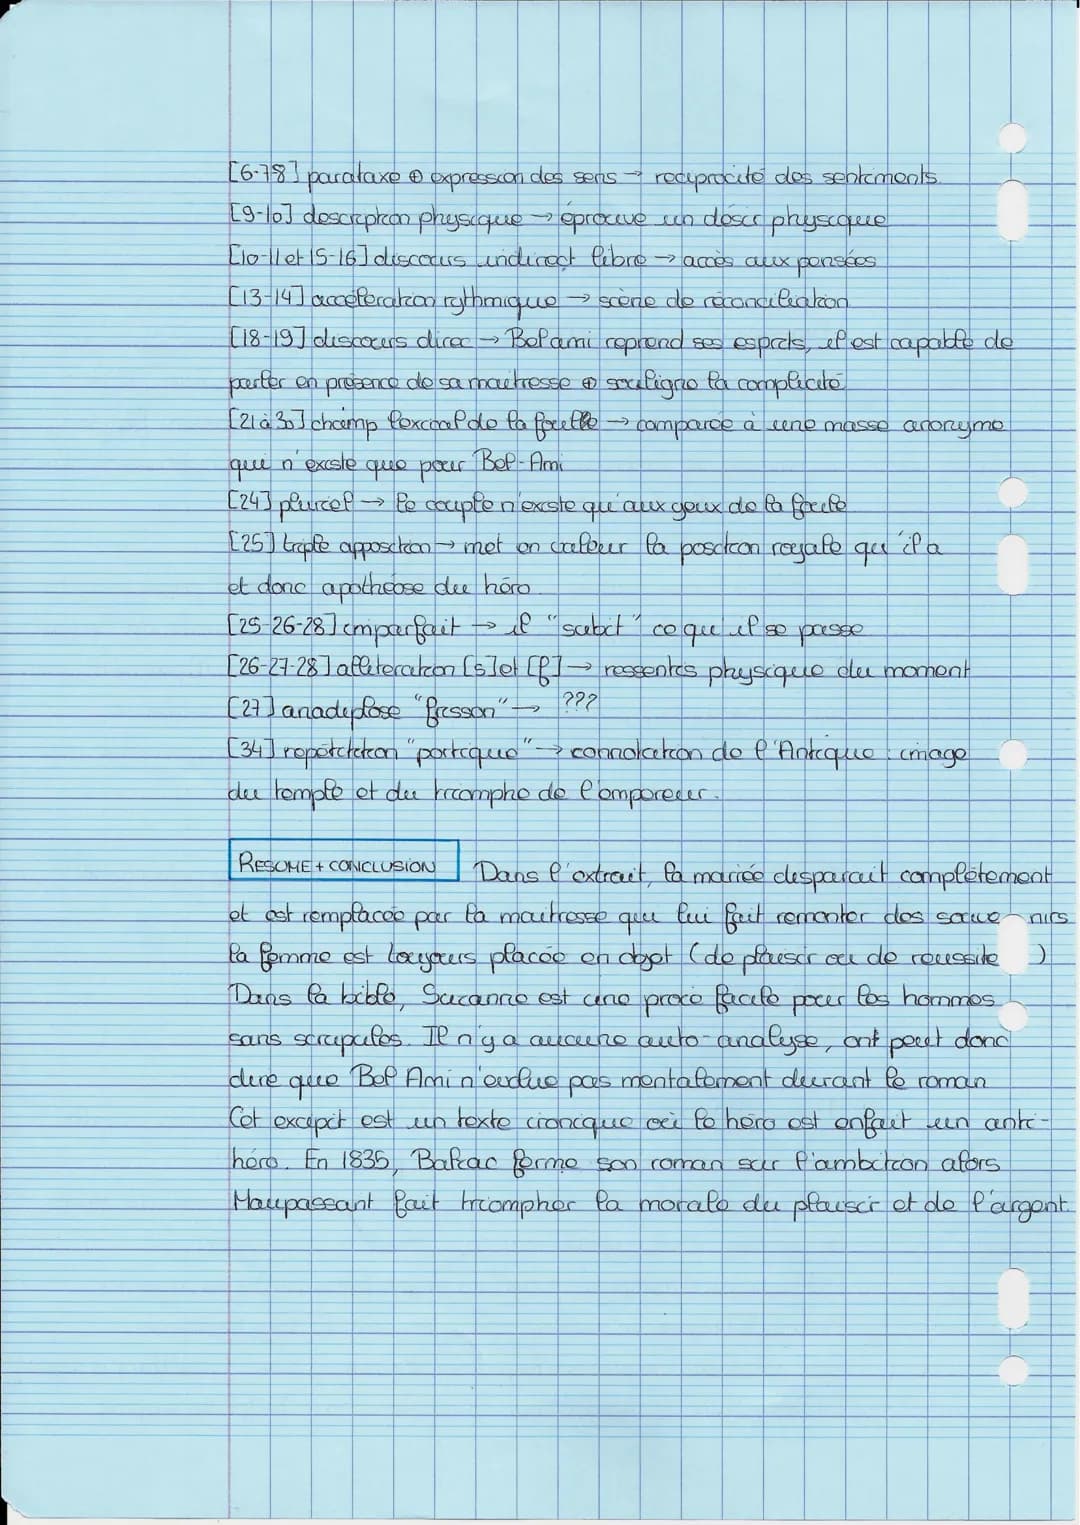 [6-78] parataxe ⊕ expression des sens → réciprocité des sentiments.
[9-10] description physique → éprouve un désir physique
[10-11 et 15-16] discours indirect libre → accès aux pensées
[13-14] accélération rythmique → scène de réconciliation
[18-19] discours direc → Bel ami reprend ses esprits, il est capable de
parler en présence de sa maitresse ⊕ souligne la complicité
[21 à 30] champ lexical de la foulle → comparée à une masse anonyme
qui n'existe que pour Bel-Ami
[24] pluriel → le couple n'existe qu'aux yeux de la foule
[25] triple apposition → met en valeur la position royale qu'il a
et donc apothéose du héro.
[25-26-28] imparfait → il "subit" ce qu'il se passe
[26-27-28] allitération [s] et [f] → ressentis physique du moment
[27] anadiplose "frisson" → ???
[34] répétitition "portique" → connotation de l'Antique : image
du temple et du triomphe de l'empereur.
RESUME + CONCLUSION Dans l'extrait, la mariée desparait complètement
et est remplacée par la maitresse qui lui fait remonter des souve nirs
la femme est toujours placée en objet (de plaisir ou de réussite )
Dans la bible, Suzanne est une proie facile pour les hommes
sans scrupules. Il n'y a aucune auto-analyse, ont peut donc
dire que Bel Ami n'évolue pas mentalement durant le roman
Cet excipit est un texte ironique où le héro est enfait un anti-
héro. En 1835, Balzac ferme son roman sur l'ambition alors
Maupassant fait triompher la morale du plaisir et de l'argent.